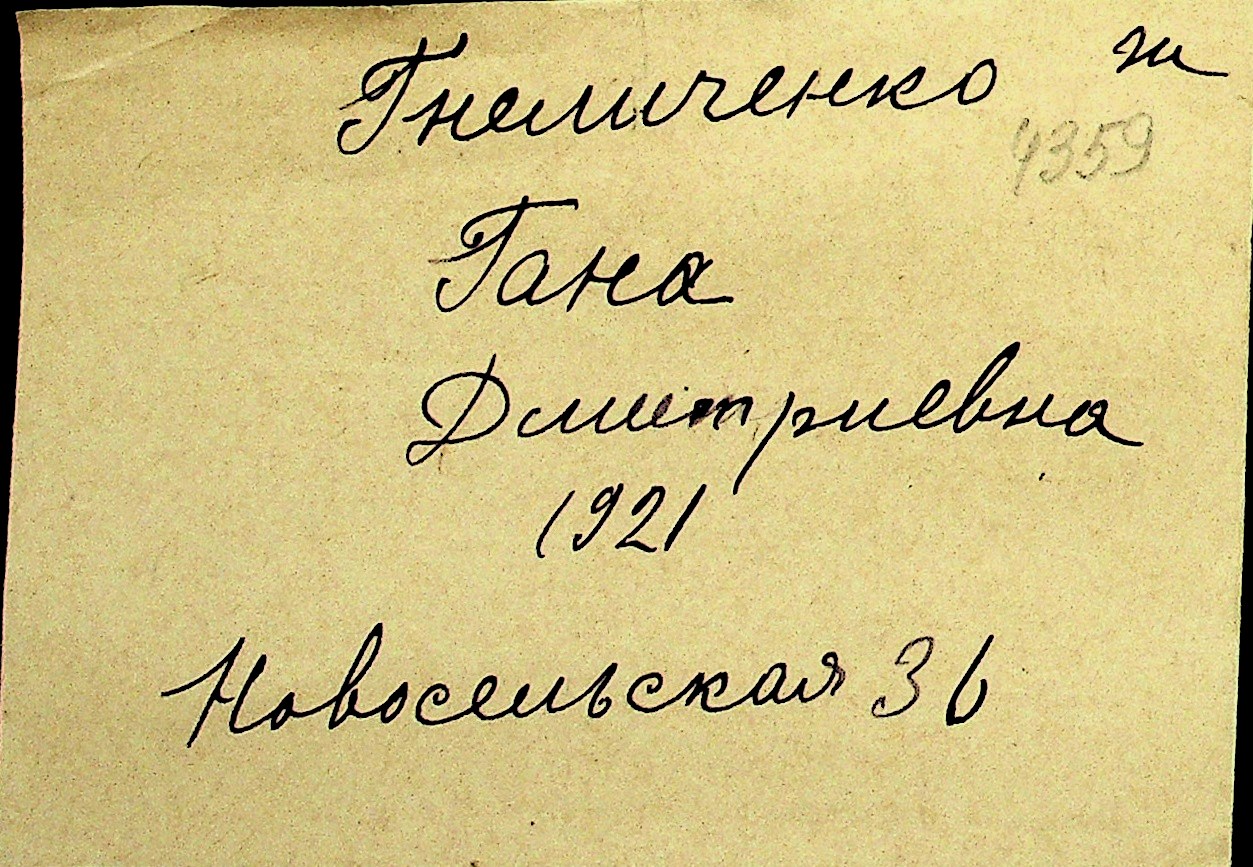 Гнеличенко ж
4359
Гана
Дмитриевна
1921
Новосельская 36